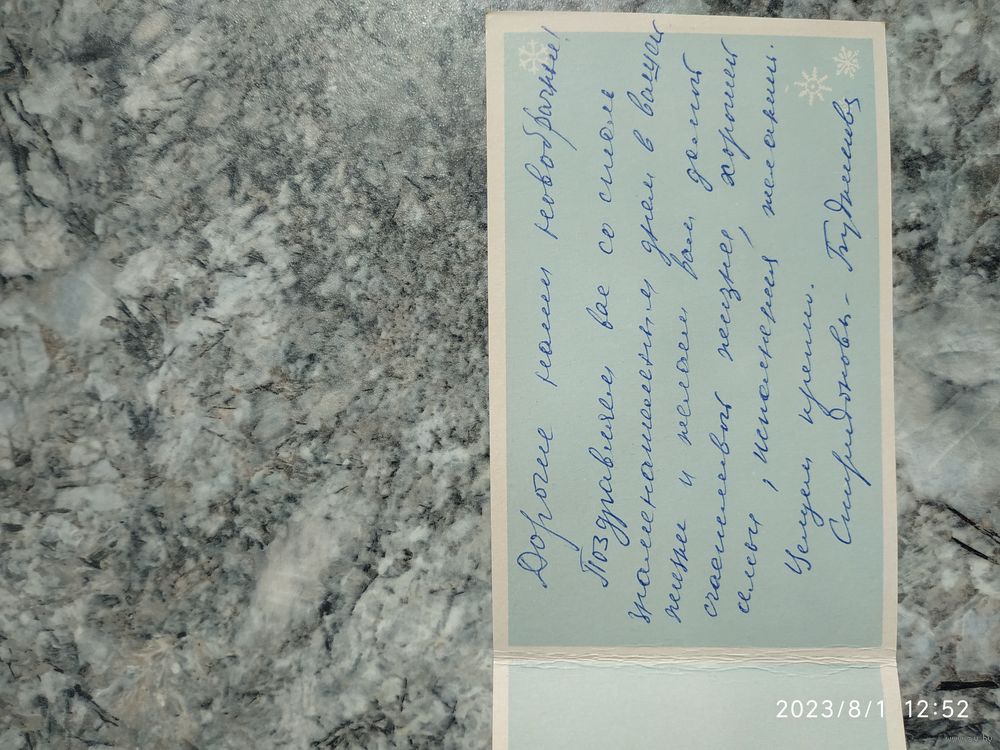 Дорогие наши новобрачные!
Поздравляем вас со столь
знаменательным днем в вашей
жизни и желаем вам долгой
счастливой жизни, хорошей
семьи, исполнения, желаний.
Целуем крепко.
Спиридоновы -
2023/8/1 12:52